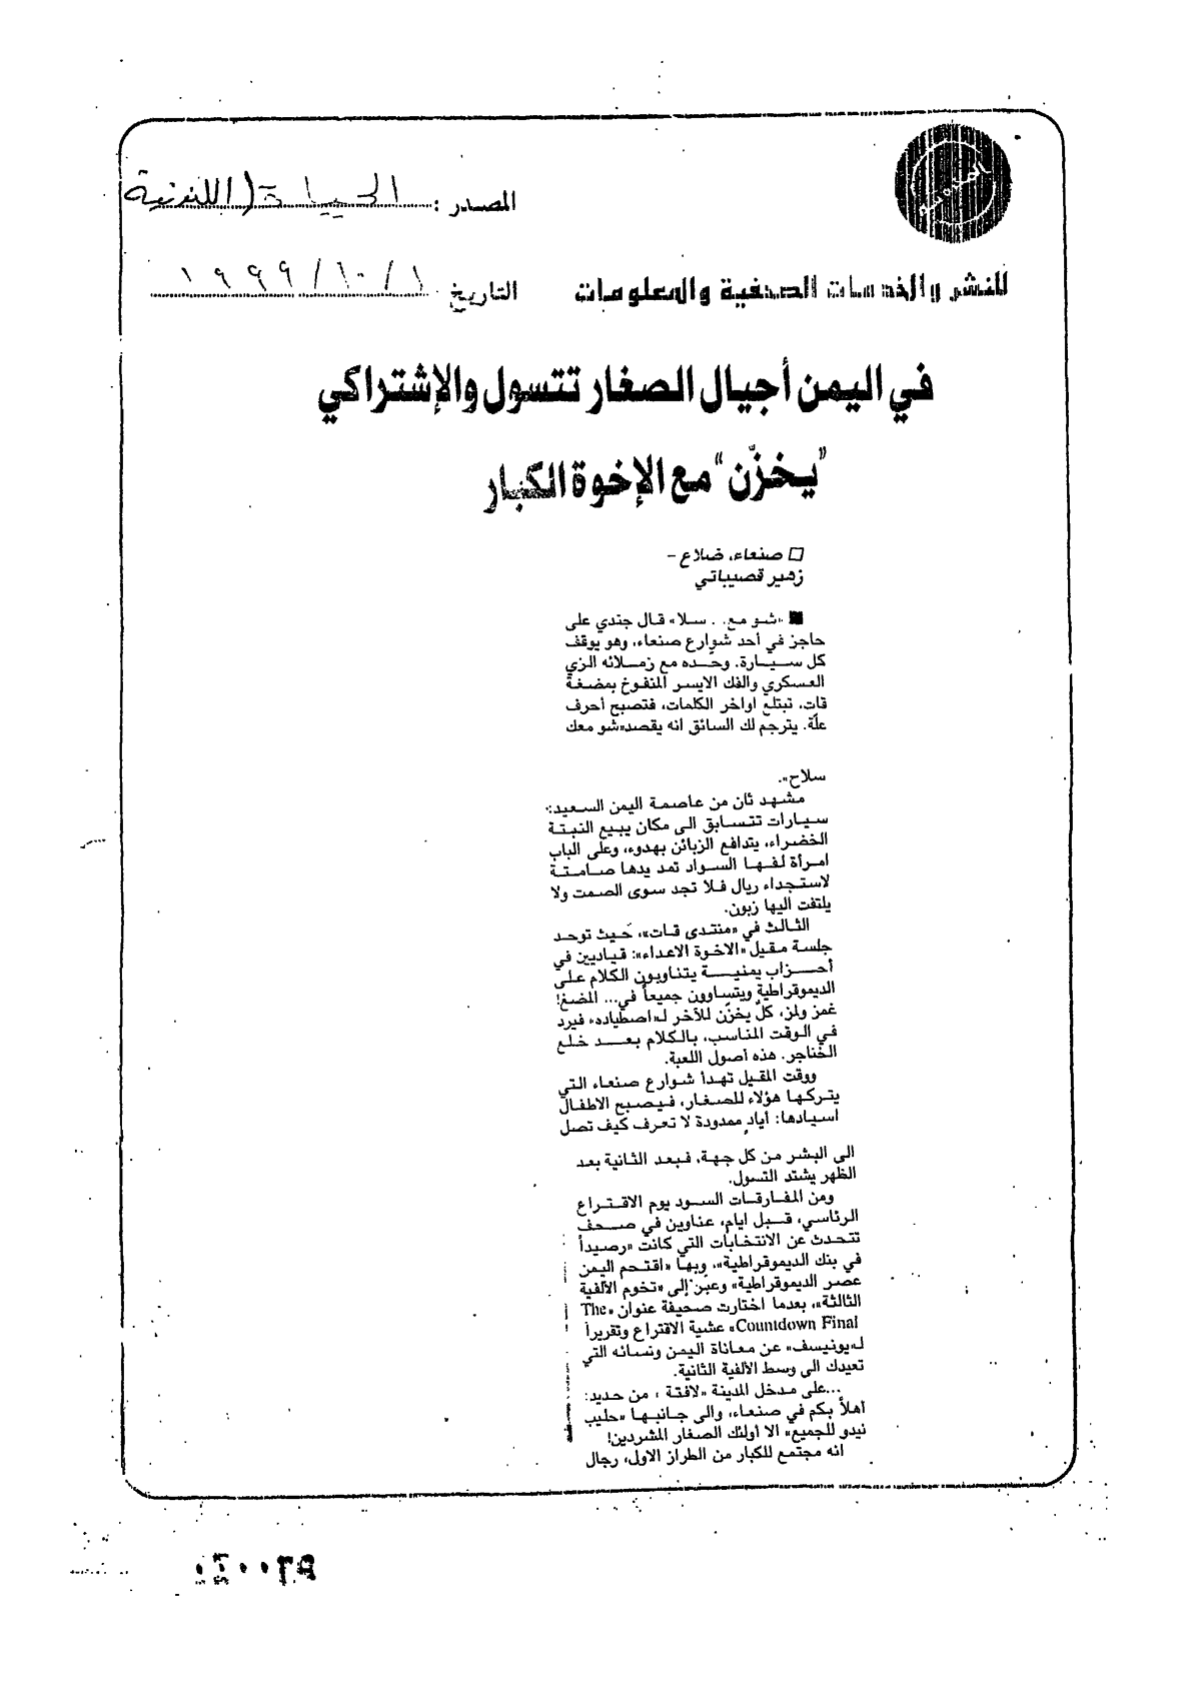 المصدر : الحياة (اللندنية
للنشر والخدمات الصحفية والمعلومات
التاريخ ١ / ١٠ / ١٩٩٩
في اليمن أجيال الصغار تتسول والإشتراكي
"يخزّن" مع الإخوة الكبار
□ صنعاء، ضلاع –
زهير قصيباتي
■ «شو مع. . سلا» قال جندي على
حاجز في أحد شوارع صنعاء، وهو يوقف
كل سيارة. وحّده مع زملائه الزي
العسكري والفك الايسر المنفوخ بمضغة
قات، تبتلع اواخر الكلمات، فتصبح أحرف
علّة. يترجم لك السائق انه يقصد«شو معك
سلاح».
مشهد ثان من عاصمة اليمن السعيد:
سيارات تتسابق الى مكان يبيع النبتة
الخضراء، يتدافع الزبائن بهدوء، وعلى الباب
امرأة لفها السواد تمد يدها صامتة
لاستجداء ريال فلا تجد سوى الصمت ولا
يلتفت اليها زبون.
الثالث في «منتدى قات»، حيث توحد
جلسة مقيل «الاخوة الاعداء»: قياديين في
أحزاب يمنية يتناوبون الكلام على
الديموقراطية ويتساوون جميعاً في... المضغ!
غمز ولمز، كلّ يخزّن للآخر لـ«اصطياده» فيرد
في الوقت المناسب، بالكلام بعد خلع
الخناجر. هذه أصول اللعبة.
ووقت المقيل تهدأ شوارع صنعاء التي
يتركها هؤلاء للصغار، فيصبح الاطفال
اسيادها: أيادٍ ممدودة لا تعرف كيف تصل
الى البشر من كل جهة، فبعد الثانية بعد
الظهر يشتد التسول.
ومن المفارقات السود يوم الاقتراع
الرئاسي، قبل ايام، عناوين في صحف
تتحدث عن الانتخابات التي كانت «رصيداً
في بنك الديموقراطية»، وبها «اقتحم اليمن
عصر الديموقراطية» وعبَر إلى «تخوم الألفية
الثالثة»، بعدما اختارت صحيفة عنوان «The
Countdown Final» عشية الاقتراع وتقريراً
لـ«يونيسف» عن معاناة اليمن ونسائه التي
تعيدك الى وسط الألفية الثانية.
...على مدخل المدينة «لافتة » من حديد:
أهلاً بكم في صنعاء، والى جانبها «حليب
نيدو للجميع» الا أولئك الصغار المشردين!
انه مجتمع للكبار من الطراز الاول، رجال